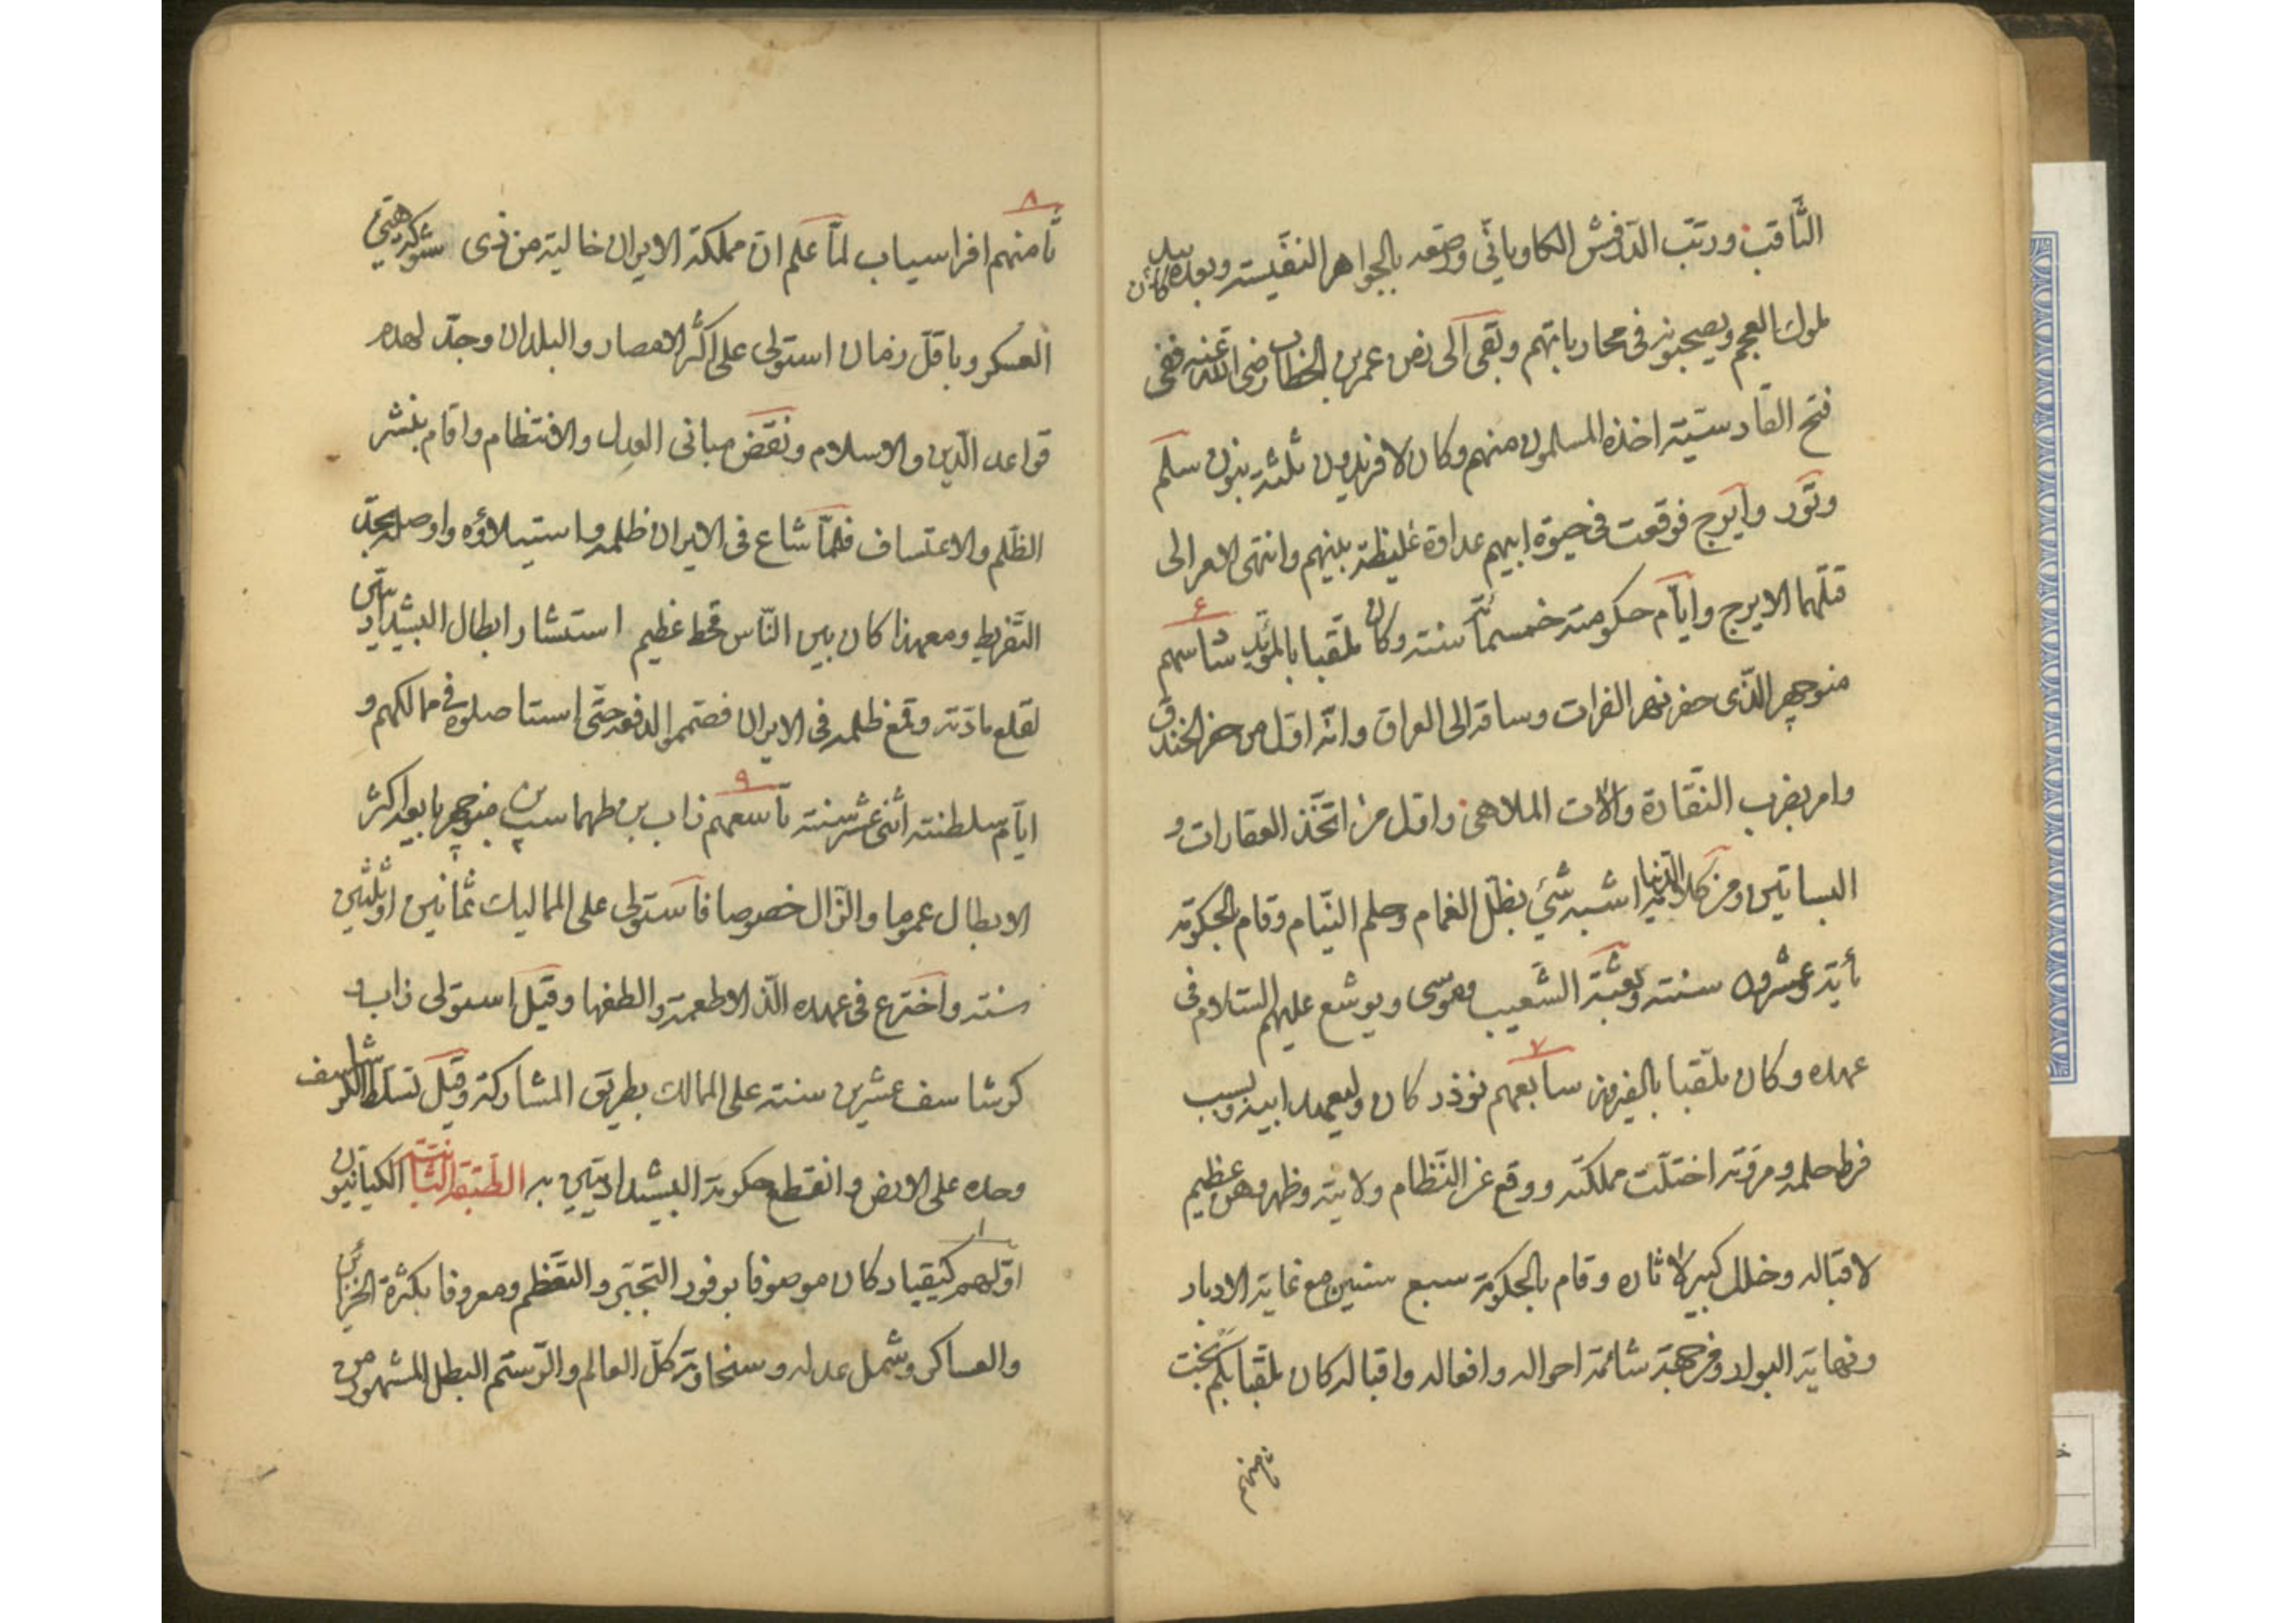 الثّاقب ورتّب الدّرفش الكاويانّي ورصّعه بالجواهر النفّيسته وبعده كان
لملوك العجم ويصحبونه في محارباتهم وبقى الى زمن عمر بن الخطاب رضى الله عنه ففى
فتح القادسيّته اخذه المسلمون منهم وكان لافريدون ثلثه بنون سلم
وتور وايرج فوقعت في حيوة ابيهم عداوة غليظة بينهم وانتهى الامر الى
قتلهما الايرج وايّام حكومته خمسمائة سنته وكان ملقّبا بالمؤيّد سادسهم ۶
منوچهر الّذى حفر نهر الفرات وساقه الى العراق وانّه اوّل من حفر الخندق
وامر بضرب النقّارة والات الملاهى واوّل من اتّخذ العقارات و
البساتين ومن كلامه الدّنيا اشبه شئ بظلّ الغمام وحلم النيّام وقام بالحكومة
مأية وعشرون سنته وبعثة الشّعيب وموسى ويوشع عليهم السّلام فى
عهده وكان ملقّبا بالفيروز سابعهم ۷ نوذر كان وليعهد ابيه وبسبب
فرط حلمه ومروّته اختلّت مملكته ووقع عن النّظام ولايته وظهر وهن عظيم
لاقباله وخلل كبير لآثاره وقام بالحكومة سبع سنين مع غاية الادبار
ونهاية البوار ومن جهة شائمة احواله وافعاله واقباله كان ملقّبا بكم بخت
ثامنهم
ثامنهم ۸ افراسياب لمّا علم انّ مملكة الايران خالية من ذى شوكة هيّئ
العسكر وباقلّ زمان استولى على اكثر الامصار والبلدان وجدّ لهدم
قواعد الدّين والاسلام ونقض مبانى العدل والانتظام واقام بنشر
الظّلم والاعتساف فلمّا شاع فى الايران ظلمه واستيلاؤه واوصله بحدّ
التّفريط ومعهذا كان بين النّاس قحط عظيم استشار ابطال البيشداديّين
لقلع مادّته وقمع ظلمه فى الايران فصمّموا لدفعه حتّى استاصلوه فى ممالكهم و
ايّام سلطنته اثنى عشر سنته تاسعهم ۹ زاب بن طهماسب بن منوچهر بايعه اكثر
الابطال عموما والزّال خصوصا فاستولى على المماليك ثمانين او ثلثين
سنته واخترع فى عهده الذّ الاطعمة والطفها وقيل استولى زاب و
كرشاسف عشرين سنته على الممالك بطريق المشاركة وقيل تسلّط الكرشاسف
وحده على الارض وانقطع حكومة البيشداديّين به الطّبقة الثّانية الكيانيّون
اوّلهم ۱ كيقباد كان موصوفا بوفور التجبّر والتعّظم ومعروفا بكثرة الخزائن
والعساكر وشمل عدله وسخاوته كلّ العالم والرّستم البطل المشهور من